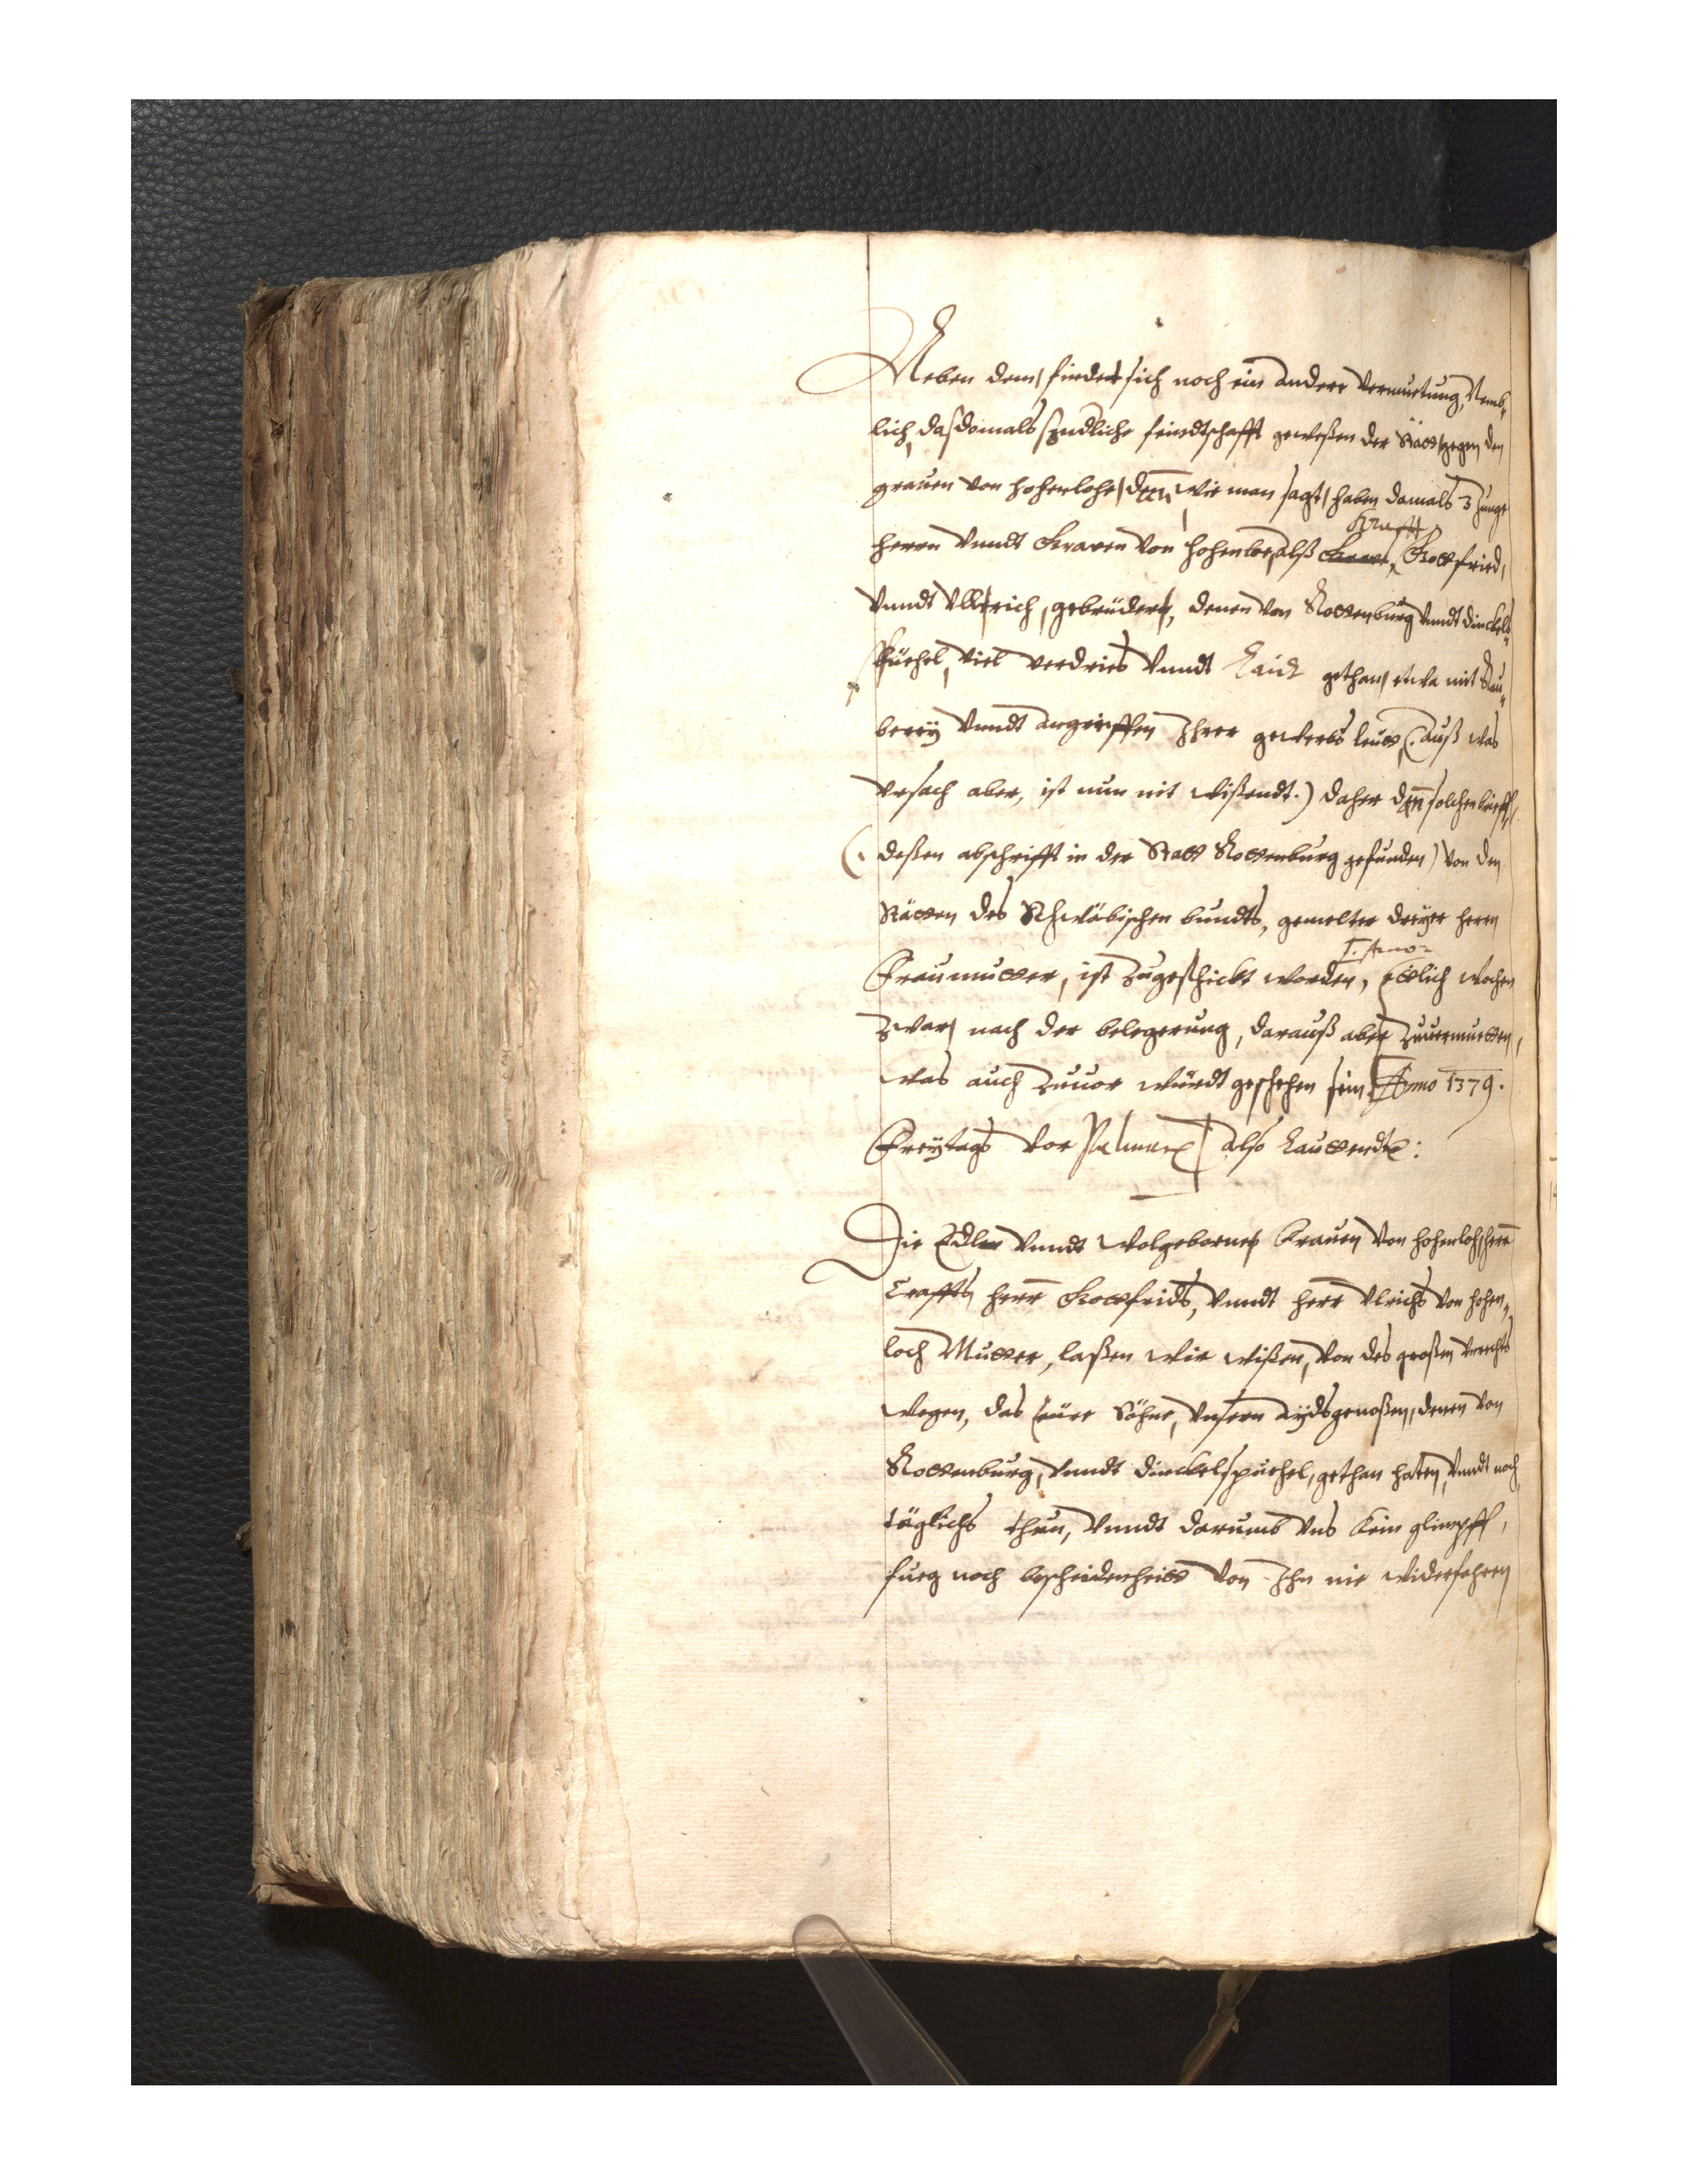 Neben dem, findet sich noch ein andere vermuetung, Nemb,,
lich, das domals endliche feindtschafft geweßen der Stätt gegen den
grauen von Hohenlohe, denn wie man sagt, haben damals 3 Junge
Herrn vnndt Graven von Hohenloe, alß Krafft, Gottfried,
vnndt Vllrich, gebrüdern, denen von Rottenburg vnndt Dinckels,,
püehel, viel verdries vnndt Laidt gethan, etwa mit Rau,,
berey vnndt angreiffen Ihrer gewerbs leutt, (auß was
vrsach aber, ist nun nit wißendt.) daher denn solchen brieff,
(deßen abschrifft in der Statt Rottenburg gefunden) von den
Stätten des Schwäbischen bundts, gemelter dreyer Herrn
Fraumutter, ist zugeschickt worden, ettlich wochen
zwar, nach der belegerung, darauß aber zuuermuetten,
was auch zuuor würdt geschehen sein. Anno 1379.
Freytags vor Palmar also lauttendt:
Die Edlen vnndt Wolgebornen Grauen von Hohenloh, Herr
Craffts, Herr Gottfrids, vnndt Herr Vlrichs von Hohen,,
loch Mutter, laßen wir wißen, von des großen vnrechts
wegen, das eure Söhne, vnsern Aydsgenoßen, denen von
Rottenburg, vnndt Dinckelspüehel, gethan haben, vnndt noch
täglichs thun, vnndt darumb vns kein glimpff,
fueg noch bescheidenheitt von Ihn nie widerfahren